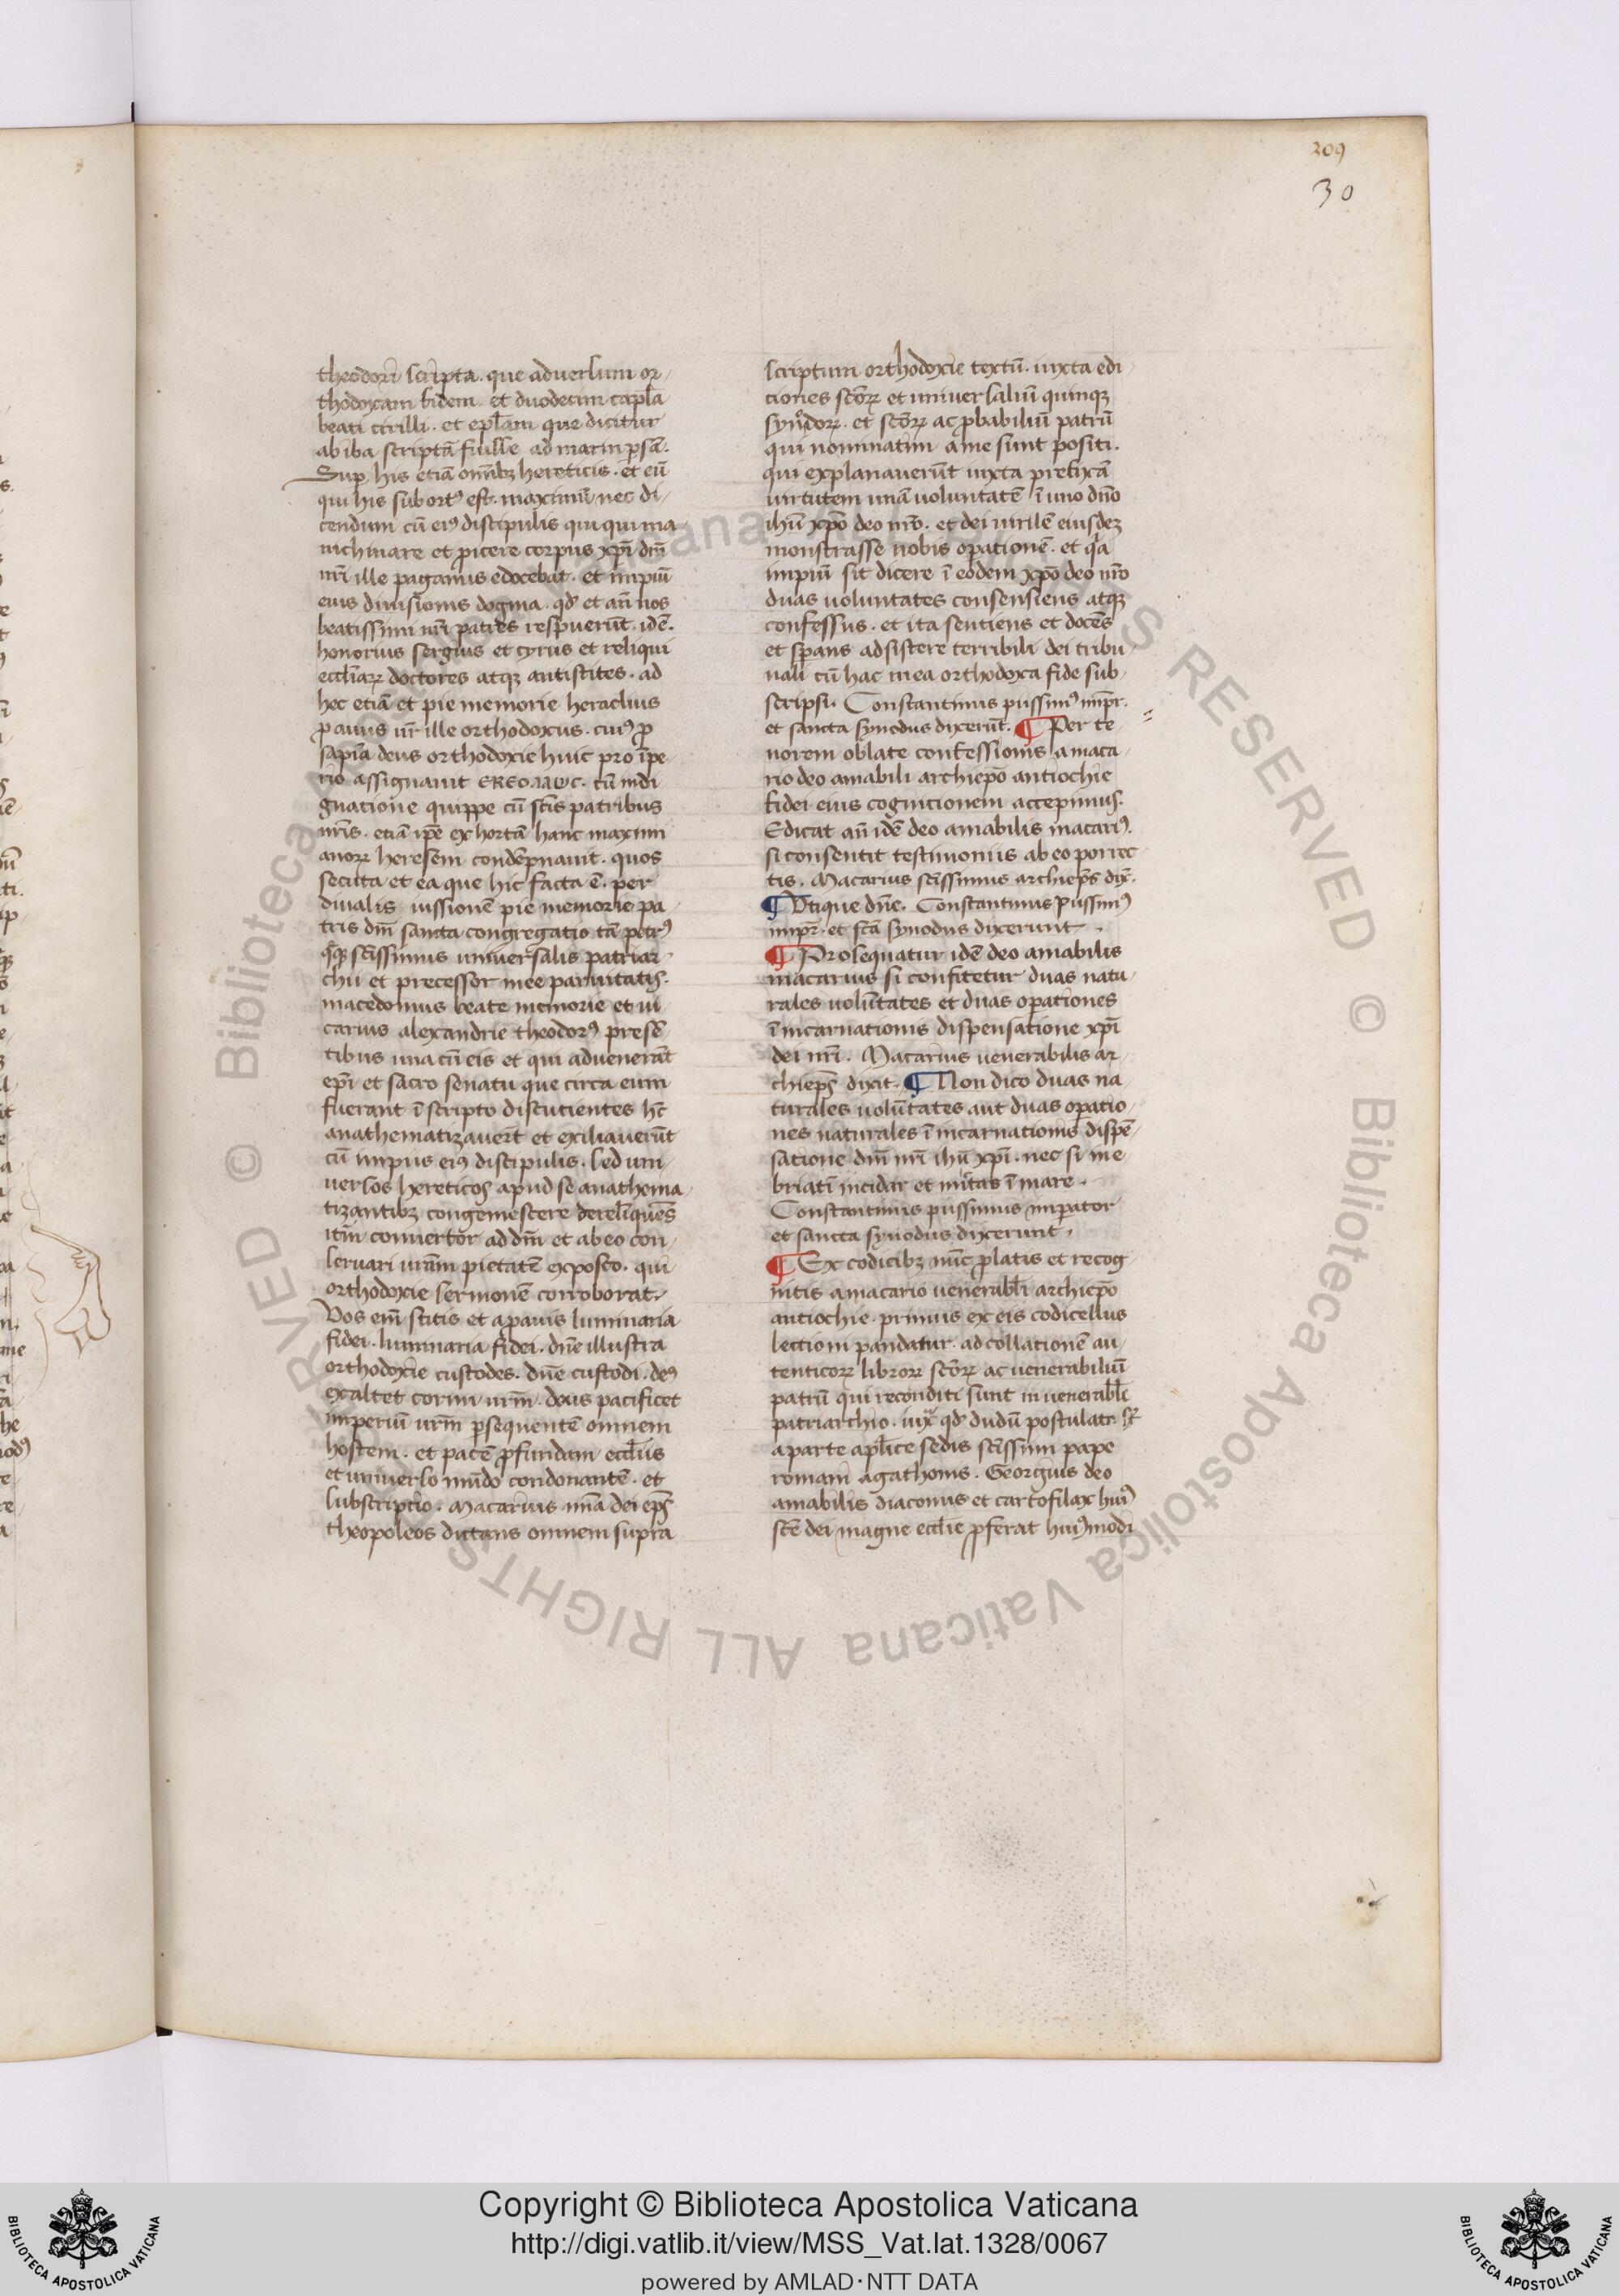 309
30
theodori scripta. que adversum or-
thodoxam fidem. et duodecim capl̄a
beati cirilli. et epl̄am que dicitur
ab iba scriptā fuisse ad marin psā.
Sup his etiā om̄ibꝫ hereticis. et eū
qui his subortꝰ est. maximū nec di-
cendum cū eiꝰ discipulis qui qui ma
nichinare et ꝓicere corpus xp̄i dn̄i
nr̄i ille paganus edocebat. et impiū
eius divisionis dogma. qd̄ et an̄ nos
beatissimi nr̄i patres respuerūt. idē.
honorius sergius et cyrus et reliqui
eccl̄iaꝝ doctores atqꝫ antistites. ad
hec etiā et pie memorie heraclius
ꝓavus vr̄ ille orthodoxus. cuiꝰ ꝓ
sapīa deus orthodoxie huic pro īpe-
rio assignavit cū indi
gnatione quippe cū sc̄is patribus
nr̄is. etiā ip̄e ex hortā hanc maximi
anoꝝ heresem condēpnavit. quos
secuta et ea que hic facta ē. per
divalis iussionē pie memorie pa
tris dn̄i sancta congregatio tā petrꝰ
sc̄issimus universalis patriar-
chii et precessor mee parvitatis.
macedonius beate memorie et vi
carius alexandrie theodorꝰ presē
tibus una cū eis et qui advenerāt
ep̄i et sacro senatu que circa eum
fuerant ī scripto discutientes hc̄
anathematizaverūt et exiliaverūt
cū impiis eiꝰ discipulis. sed uni-
versos hereticos apud se anathema
tizantibꝫ congemescere derelīquēs
itm̄ convertor ad dm̄ et ab eo con-
servari vr̄am pietatē exposco. qui
orthodoxie sermonē corroborat.
Vos em̄ scitis et a pavis luminaria
fidei. luminaria fidei. dn̄e illustra
orthodoxie custodes. dn̄e custodi. deꝰ
exaltet cornu vr̄m. deus pacificet
imperiū vr̄m ꝑsequentē omnem
hostem. et pacē ꝓfundam eccl̄iis
et universo mūdo condonantē. et
subscriptio. Macarius mīa dei ep̄s
theopoleos dictans omnem supra
scriptum orthodoxie textū. iuxta edi
ciones sc̄oꝝ et universaliū quinqꝫ
synodoꝝ. et sc̄oꝝ ac ꝓbabiliū patrū
qui nominatim a me sunt positi.
qui explanaverūt iuxta prefixā
virtutem unā voluntatē ī uno dn̄o
ihū xpō deo nr̄o. et dei virilē eiusdeꝫ
monstrasse nobis opationē. et qa
impiū sit dicere ī eodem xpō deo nr̄o
duas voluntates consensiens atqꝫ
confessus. et ita sentiens et docēs
et sperans adsistere terribili dei tribu-
nali cū hac mea orthodoxa fide sub-
scripsi. Constantinus piissimꝰ impr.
et sancta synodus dixerūt. ¶ Per te-
norem oblate confessionis a maca-
rio deo amabili archiepō antiochie
fidei eius cognitionem accepimus.
Edicat an̄ idē deo amabilis macariꝰ.
si consentit testimoniis ab eo porrec
tis. Macarius sc̄issimus archieps̄ dix̄.
¶ Vtique dn̄e. Constantinus piissimꝰ
impr̄. et sc̄a synodus dixerunt.
¶ Prosequatur idē deo amabilis
macarius si confitetur duas natu-
rales volūtates et duas operationes
ī incarnationis dispensatione xp̄i
dei nr̄i. Macarius venerabilis ar-
chieps̄ dixit. ¶ Non dico duas na
turales volūtates aut duas opatio-
nes naturales ī incarnationis dispē-
satione dn̄i nr̄i ihū xp̄i. nec si me-
briatī incidar et mitas ī mare.
Constantinus piissimus imperator
et sancta synodus dixerunt.
¶ Ex codicibꝫ nūc ꝓlatis et recog-
nitis a macario venerabl̄i archiepō
antiochie. primus ex eis codicellus
lectioni pandatur. ad collationē au-
tenticoꝝ libroꝝ sc̄oꝝ ac venerabiliū
patrū qui reconditi sunt in venerabl̄e
patriarchio. iux̄ qd̄ dudū postulatū
a parte apl̄ice sedis sc̄issimi pape
romani agathonis. Georgius deo
amabilis diaconus et cartofilax huiꝰ
sc̄e dei magne eccl̄ie ꝓferat huiꝰmodi
Copyright © Biblioteca Apostolica Vaticana
http://digi.vatlib.it/view/MSS_Vat.lat.1328/0067
powered by AMLAD·NTT DATA
BIBLIOTECA APOSTOLICA VATICANA
BIBLIOTECA APOSTOLICA VATICANA